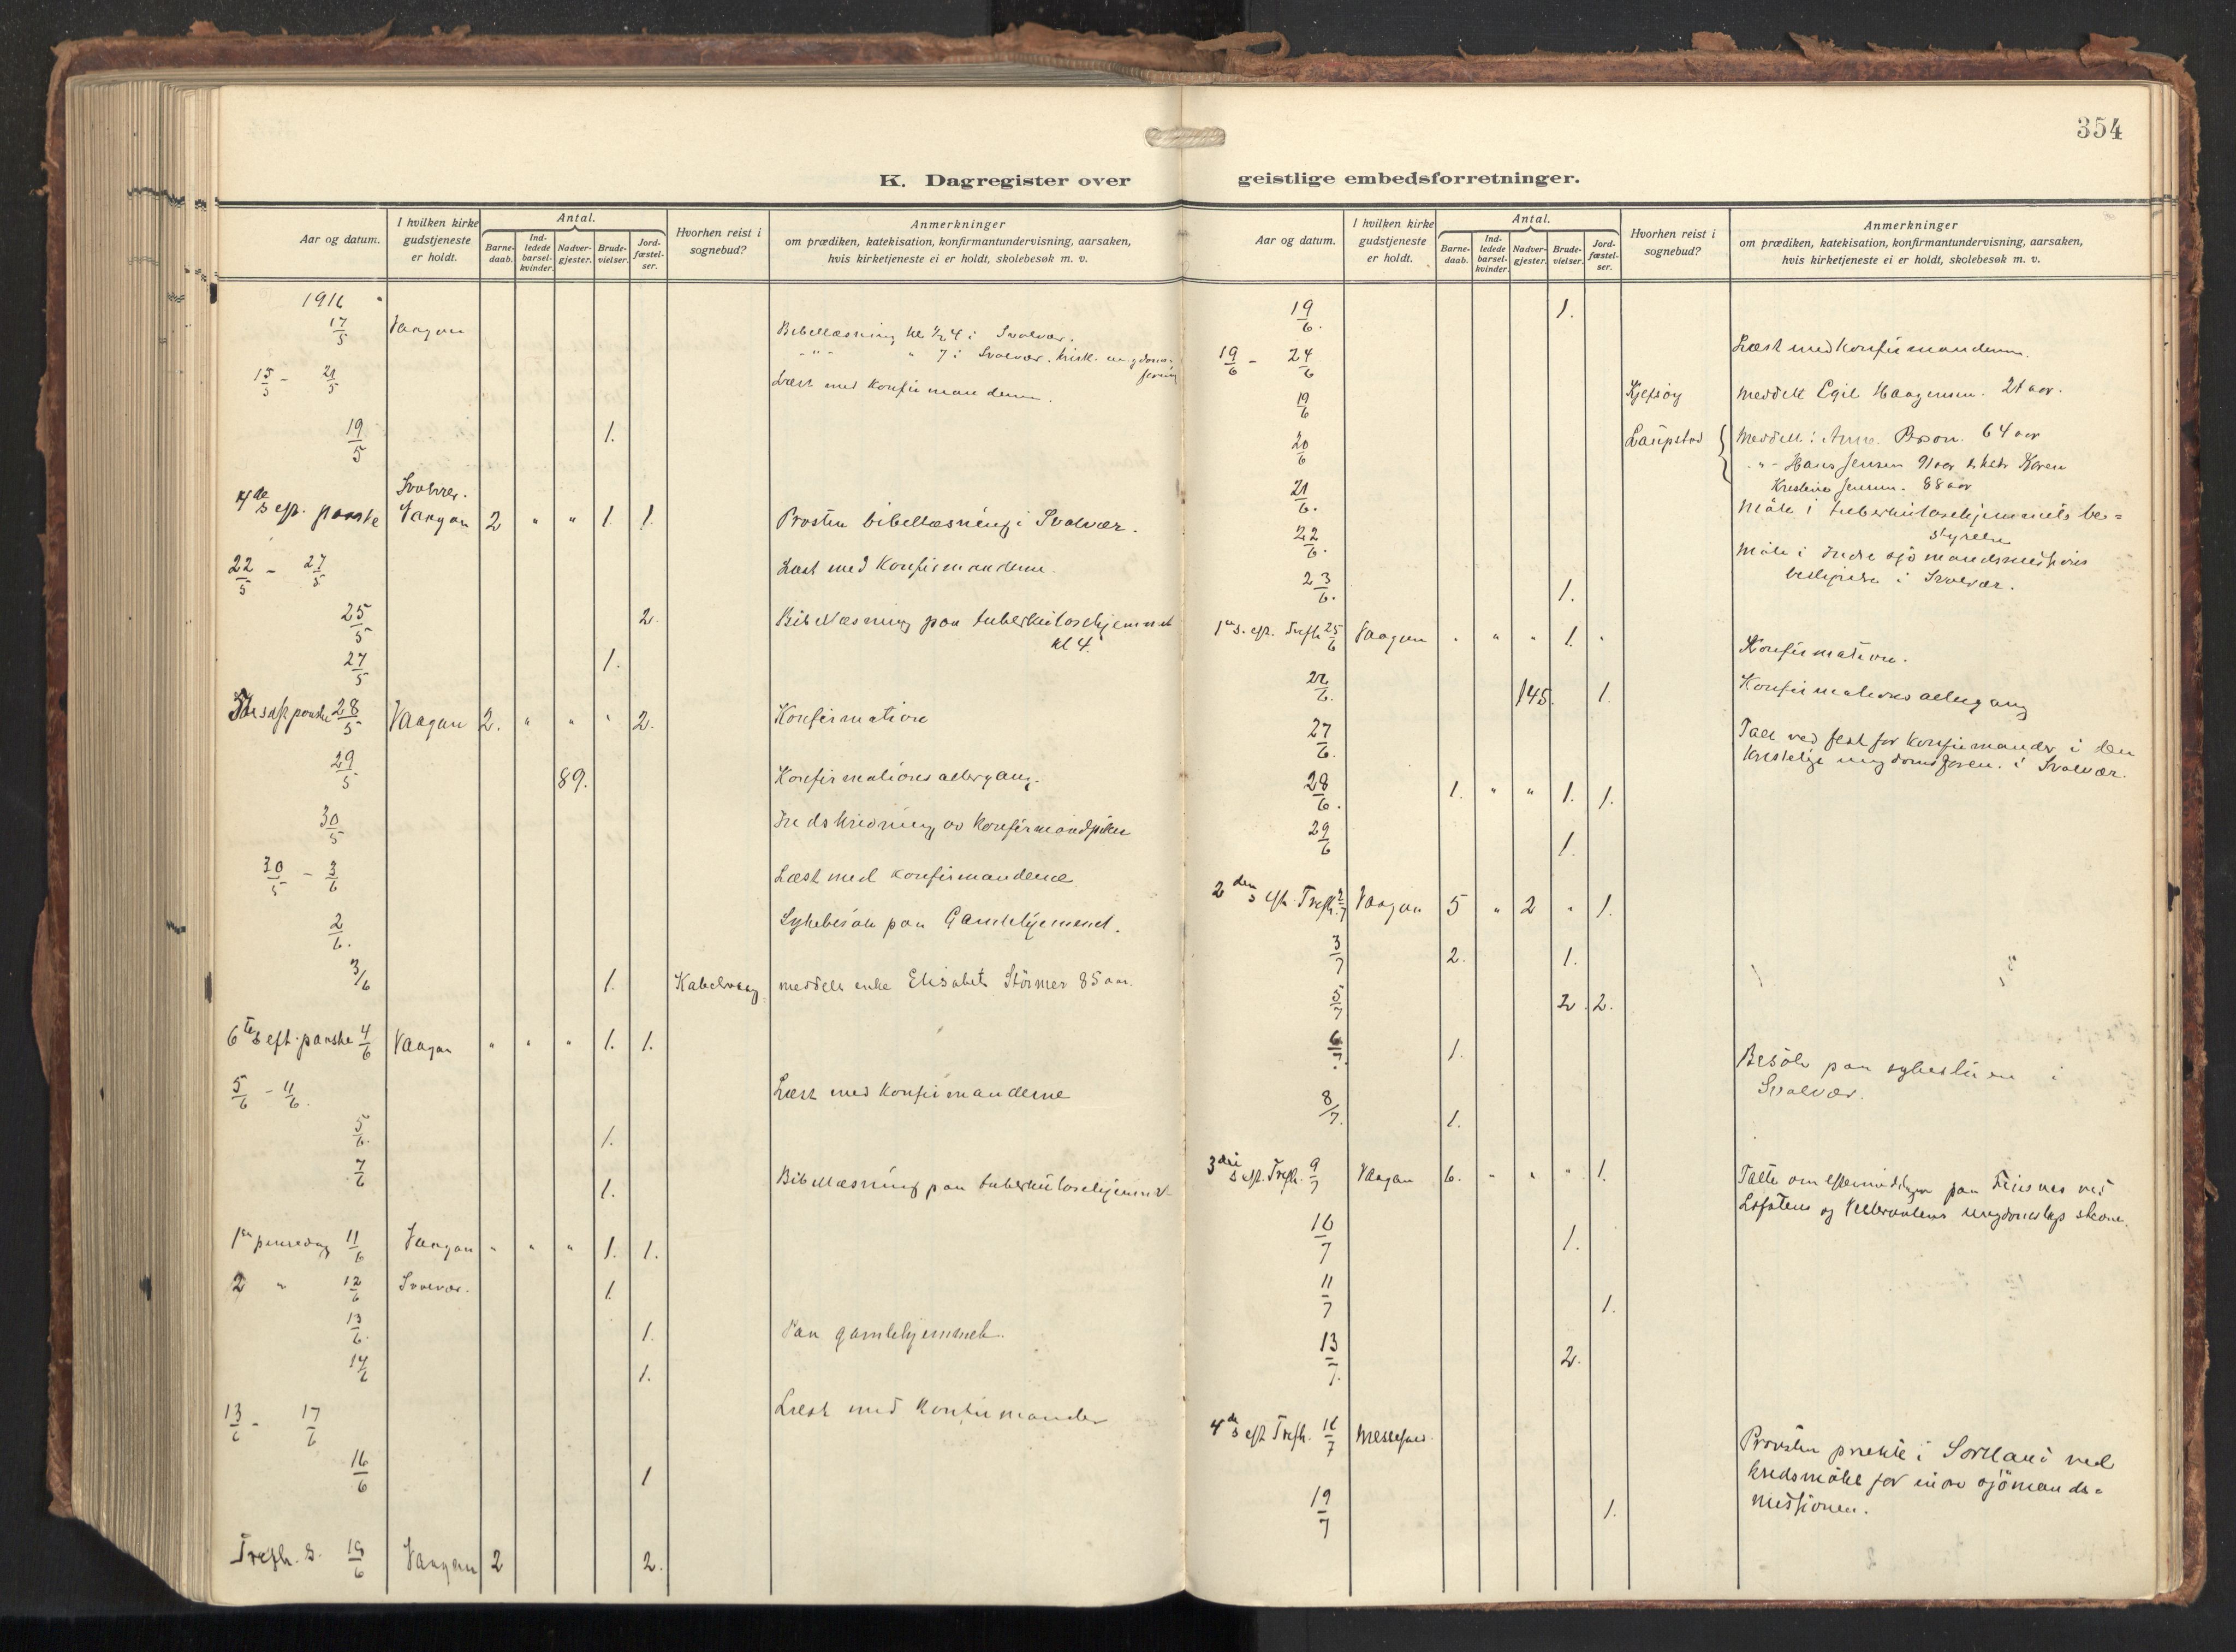 354
K. Dagregister over geistlige embedsforretninger.
Aar og datum.
I hvilken kirke gudstjeneste er holdt.
Antal.
Barne-daab.
Ind-ledede barsel-kvinder.
Nadver-gjester.
Brude-vielser.
Jord-fæstel-ser.
Hvorhen reist i sognebud?
Anmerkninger
om prædiken, katekisation, konfirmantundervisning, aarsaken,
hvis kirketjeneste ei er holdt, skolebesøk m. v.
1916
17/5 Vaagan Bibellæsning kl. ½4 i Svolvær.
-"- " 7 i Svolvær. krisk. ungdoms-
forening
15/5 - 21/5 Læst med konfirmandene.
19/5 1.
Svolvær.
4de s. eft. paaske Vaagan 2 " " 1. 1. Prosten bibellæsning i Svolvær.
22/5 - 27/5 Læst med konfirmandene.
25/5 2. Bibellæsning paa tuberkulosehjemmet
kl 4.
27/5 1.
5te s eft paaske 28/5 Vaagan 2. " " " 2. Konfirmation
29/5 89. Konfirmationsaltergang.
30/5 Indskrivning av konfirmandpiker
30/5 - 3/6 Læst med konfirmandene
2/6. Sykebesøk paa Gamlehjemmet.
3/6 1. Kabelvaag meddelt enke Elisabet Störmer 85 aar.
6te s eft. paaske 4/6 Vaagan " " " 1. 1.
5/6 - 11/6. Læst med konfirmandene
5/6. 1.
7/6 1. Bibellæsning paa tuberkulosehjemmet
1ste pinsedag 11/6 Vaagan " " " 1. 1.
2 " 12/6 Svolvær. 1.
13/6. 1. Paa gamlehjemmet.
14/6 1.
13/6 - 17/6 Læst med konfirmander
16/6 1
Trefh. s. 18/6 Vaagan 2 2.
Aar og datum.
I hvilken kirke gudstjeneste er holdt.
Antal.
Barne-daab.
Ind-ledede barsel-kvinder.
Nadver-gjester.
Brude-vielser.
Jord-fæstel-ser.
Hvorhen reist i sognebud?
Anmerkninger
om prædiken, katekisation, konfirmantundervisning, aarsaken,
hvis kirketjeneste ei er holdt, skolebesøk m. v.
19/6. 1.
19/6 - 24/6 Læst med konfirmandene.
19/6 meddelt Egil Haagensen. 21 aar.
20/6 Laupstad meddelt: 64 aar
-"- Hans Jensen 91 aar Karen
Kristine Jensen. 88 aar
21/6. Møte i tuberkulosehjemmets be=
styrelse
22/6. Møte i Indre sjömandsmissions
bestyrelse i Svolvær.
23/6. 1.
1ste s. eft. Trefh 25/6 Vaagan " " " 1. " Konfirmation.
26/6. 145. 1. Konfirmationsaltergang
27/6. Tale ved fest for konfirmander i den
kristelige ungdomsforen. i Svolvær.
28/6. 1. " " 1. 1.
29/6 1.
2den s eft. Trefh. 2/7 Vaagan 5 " 2 " 1.
3/7 2. 1.
5/7 2. 2.
6/7. 1. Besök paa sykestuen i
Svolvær.
8/7. 1.
3die s eft. Trefh. 9/7 Vaagan 6. " " " 1. Talte om eftermiddagen paa ved
Lofotens og Vesteraalens ungdomslags stevne.
10/7 1.
11/7 1.
13/7. 2.
4de s eft Trefh. 16/7 Messefald. Prosten præket i Sortland ved
kredsmöte for indre sjömands=
missionen.
19/7 1.